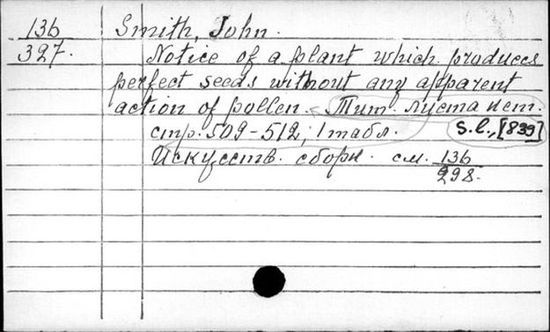 136 Smith, John.
327. Notice of a plant which produces
perfect seeds without any apparent
action of pollen. Тит. листа нет.
стр. 509-512, 1 табл. S.l., [839]
Искусств. сборн. см. 136
298.